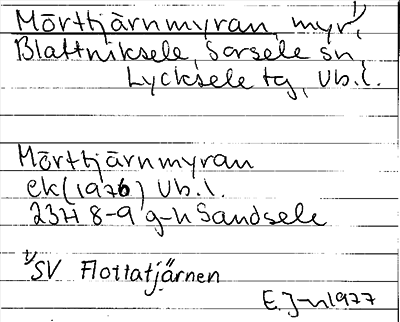 Mörttjärnmyran, myr,¹⁾
Blattniksele, Sorsele sn,
Lycksele tg, Vb.l.
Mörttjärnmyran
ek (1976) Vb.l.
23H 8-9 g-h Sandsele
¹⁾SV Flottatjärnen
E.J-n 1977